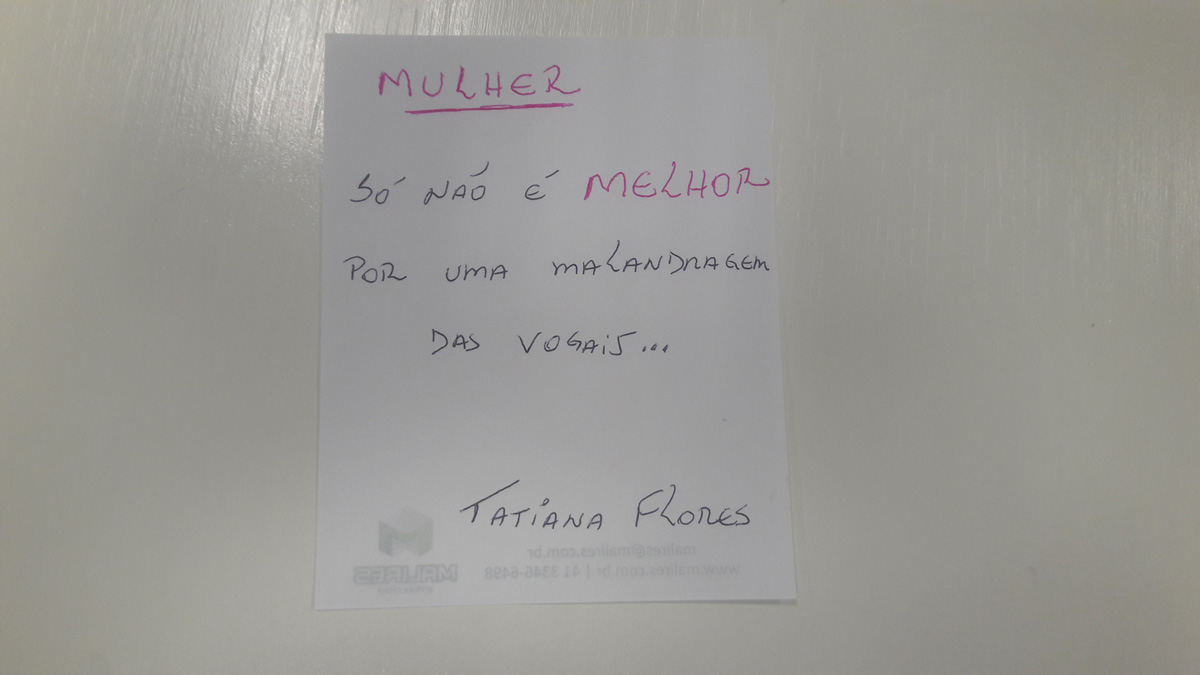 MULHER
SÓ NÃO É MELHOR
POR UMA MALANDRAGEM
DAS VOGAIS...
TATIANA FLORES
malires@malires.com.br
www.malires.com.br | 41 3346-6498
MALIRES